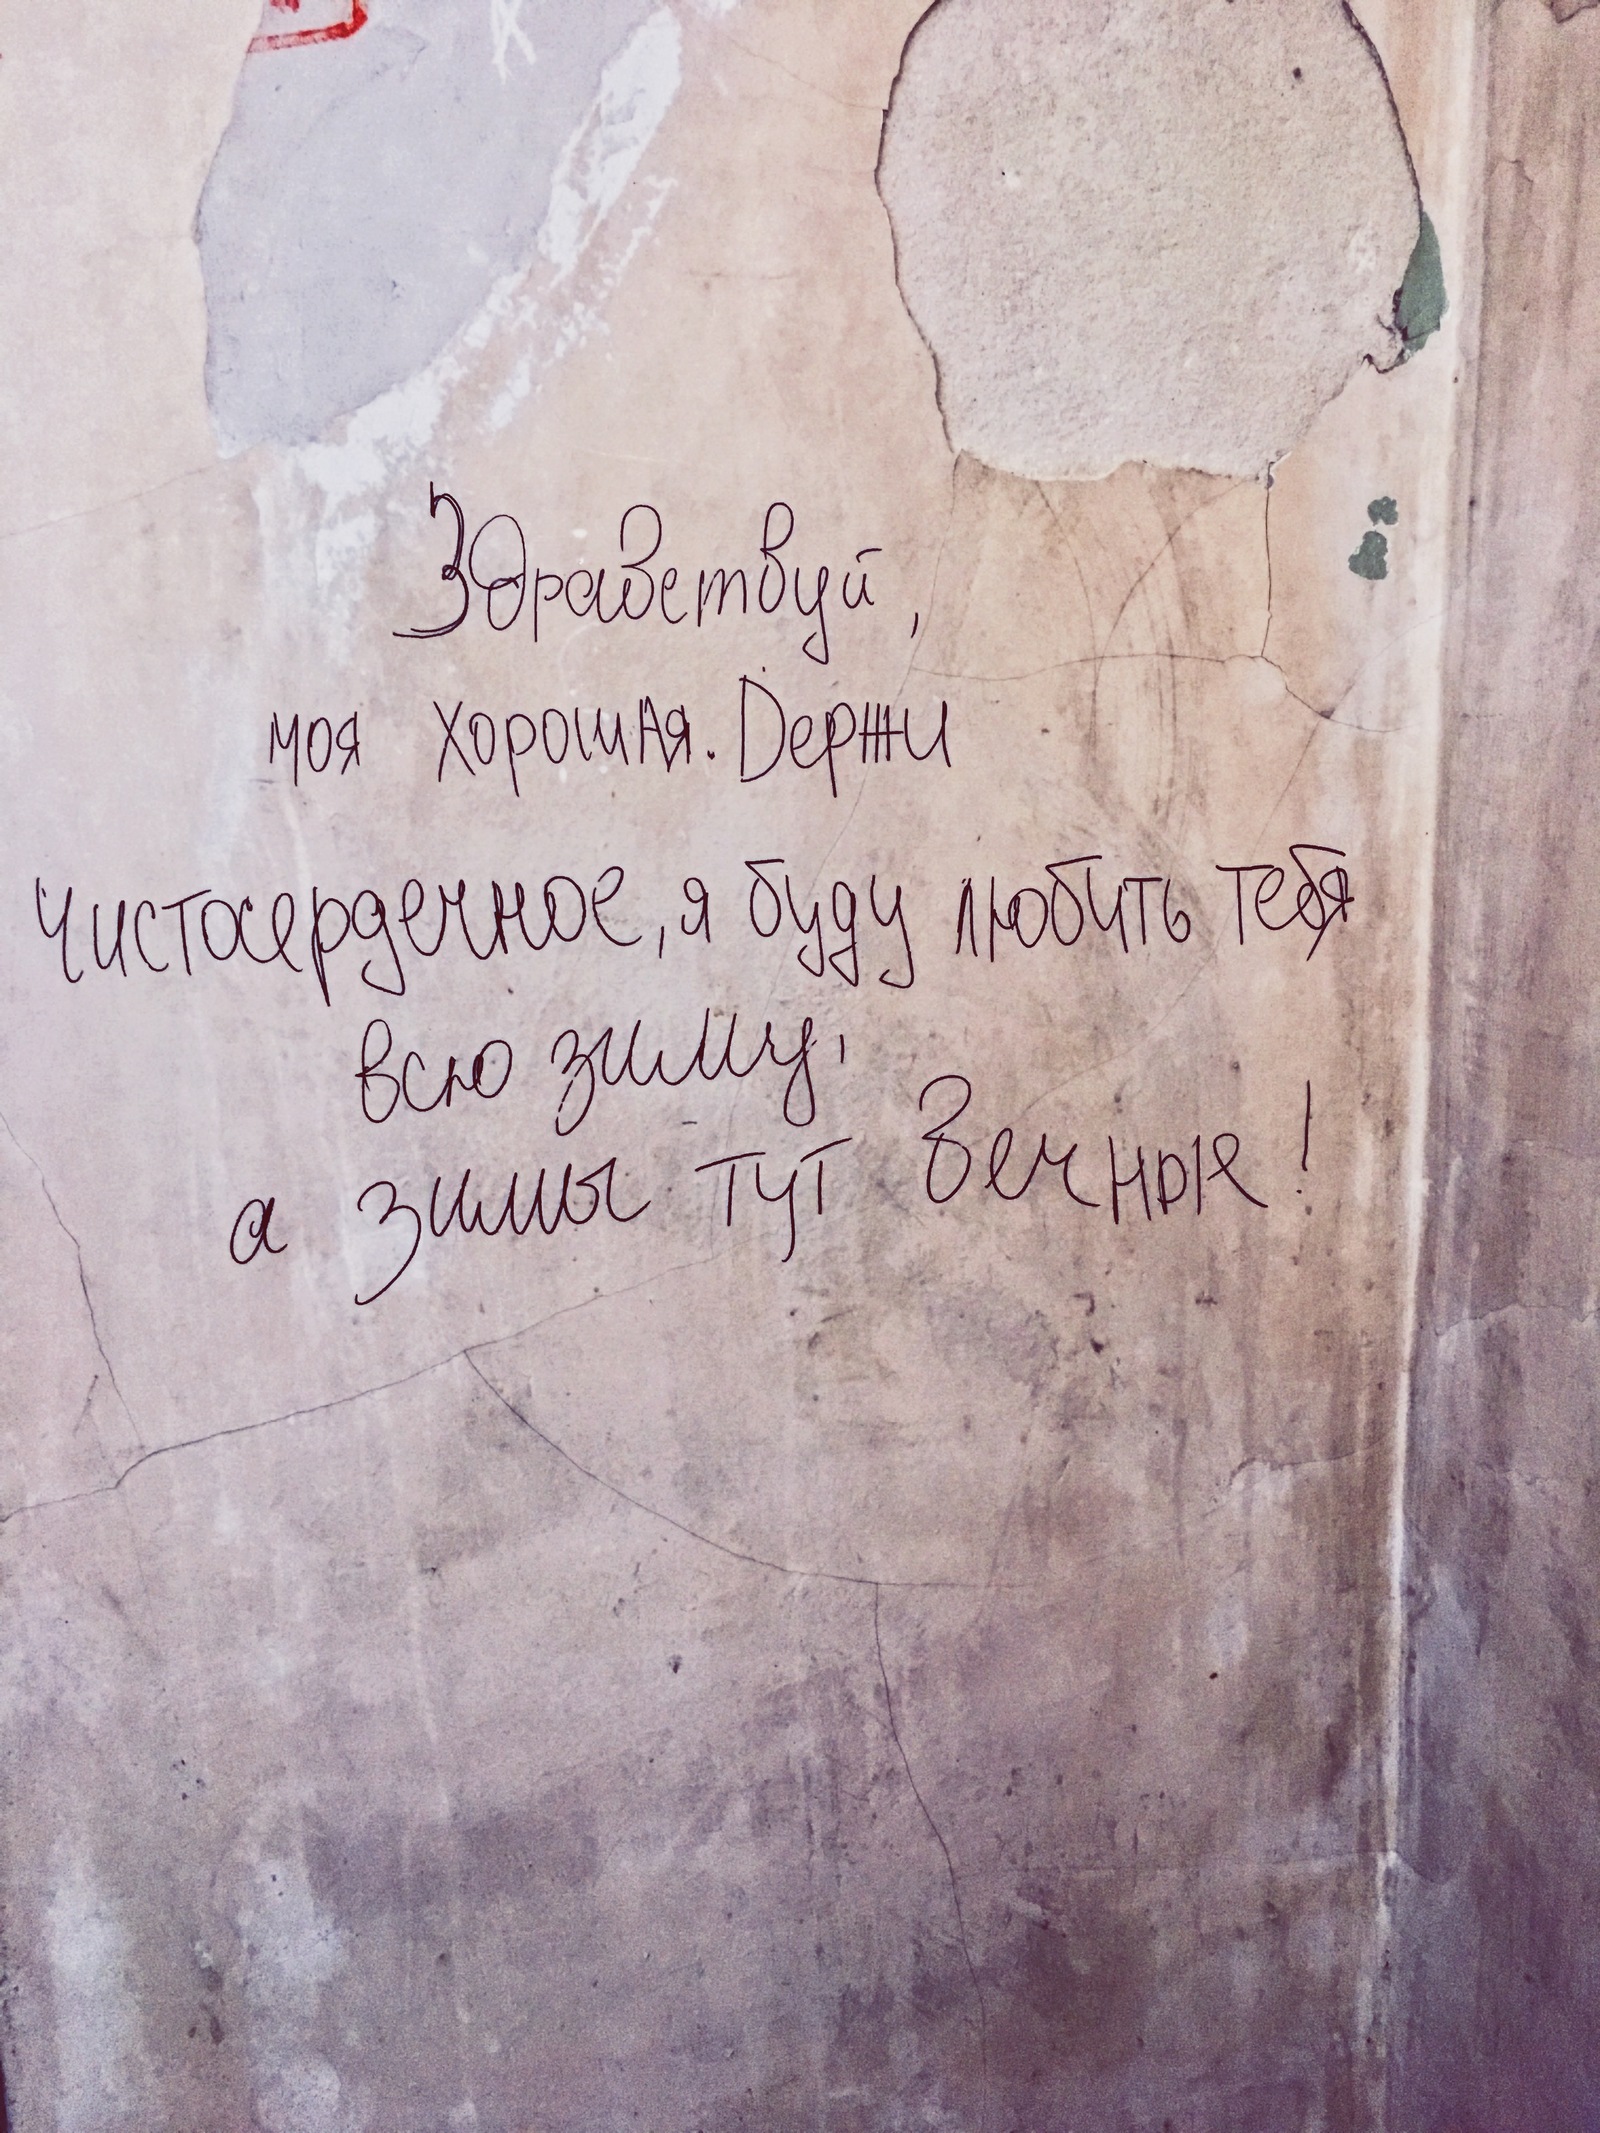 Здравствуй,
моя хорошая. Держи
чистосердечное, я буду любить тебя
всю зиму,
а зимы тут вечные!